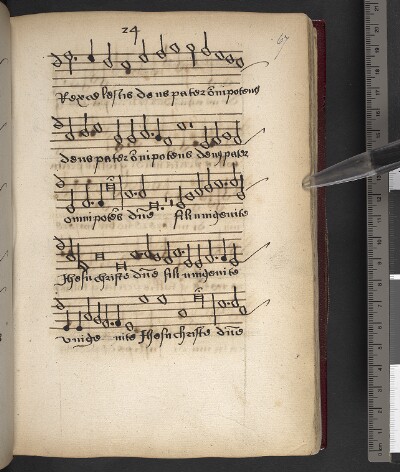 24
67
Rex celestis deus pater omnipotens
deus pater omnipotens deus pater
omnipotēs dn̄e fili unigenite
Jhesu christe dn̄e fili unigenite
vnige nite Jhesu christe dn̄e